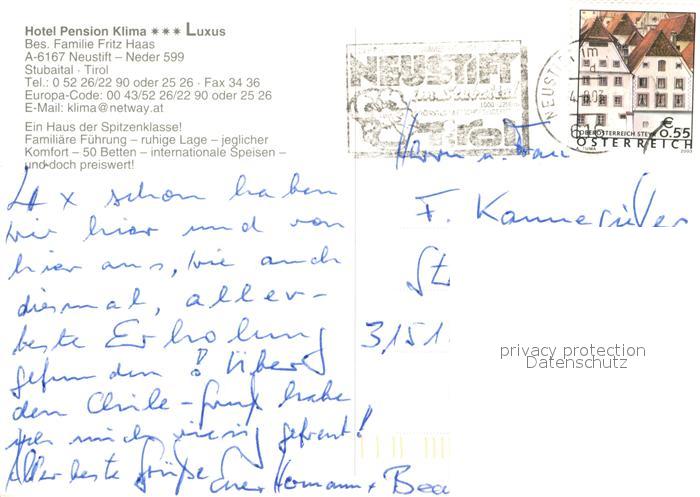 Hotel Pension Klima *** Luxus
Bes. Familie Fritz Haas
A-6167 Neustift – Neder 599
Stubaital · Tirol
Tel.: 0 52 26/22 90 oder 25 26 · Fax 34 36
Europa-Code: 00 43/52 26/22 90 oder 25 26
E-Mail: klima@netway.at
Ein Haus der Spitzenklasse!
Familiäre Führung – ruhige Lage – jeglicher
Komfort – 50 Betten – internationale Speisen –
und doch preiswert!
4 x schon haben
wir hier und von
hier aus, wie auch
diesmal, aller-
beste Erholung
gefunden! Über
den Chile-Gruß habe
ich mich riesig gefreut!
Allerbeste Grüße
Euer Hermann + Bea
NEUSTIFT
€ 0.55
ÖSTERREICH
Herrn u. Frau
F.
St
3151
privacy protection
Datenschutz